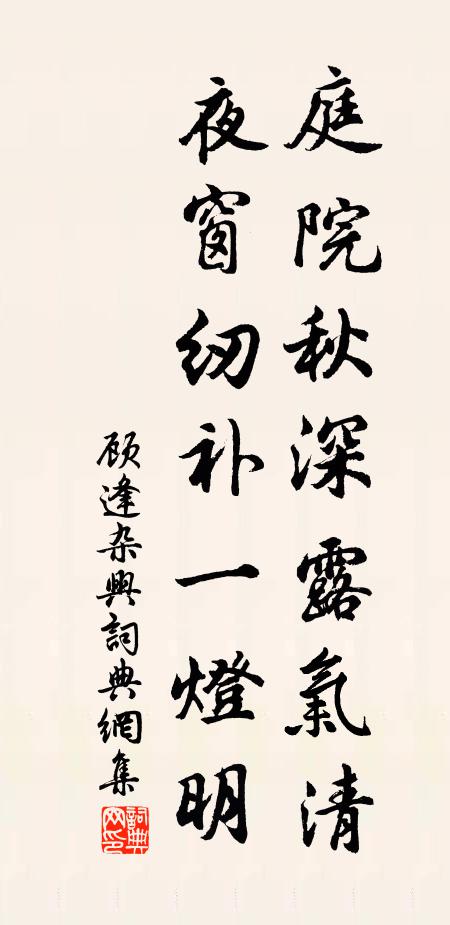 庭院秋深露氣清
夜窗纫补一燈明
顾逢杂興詞典網集
詞典网印